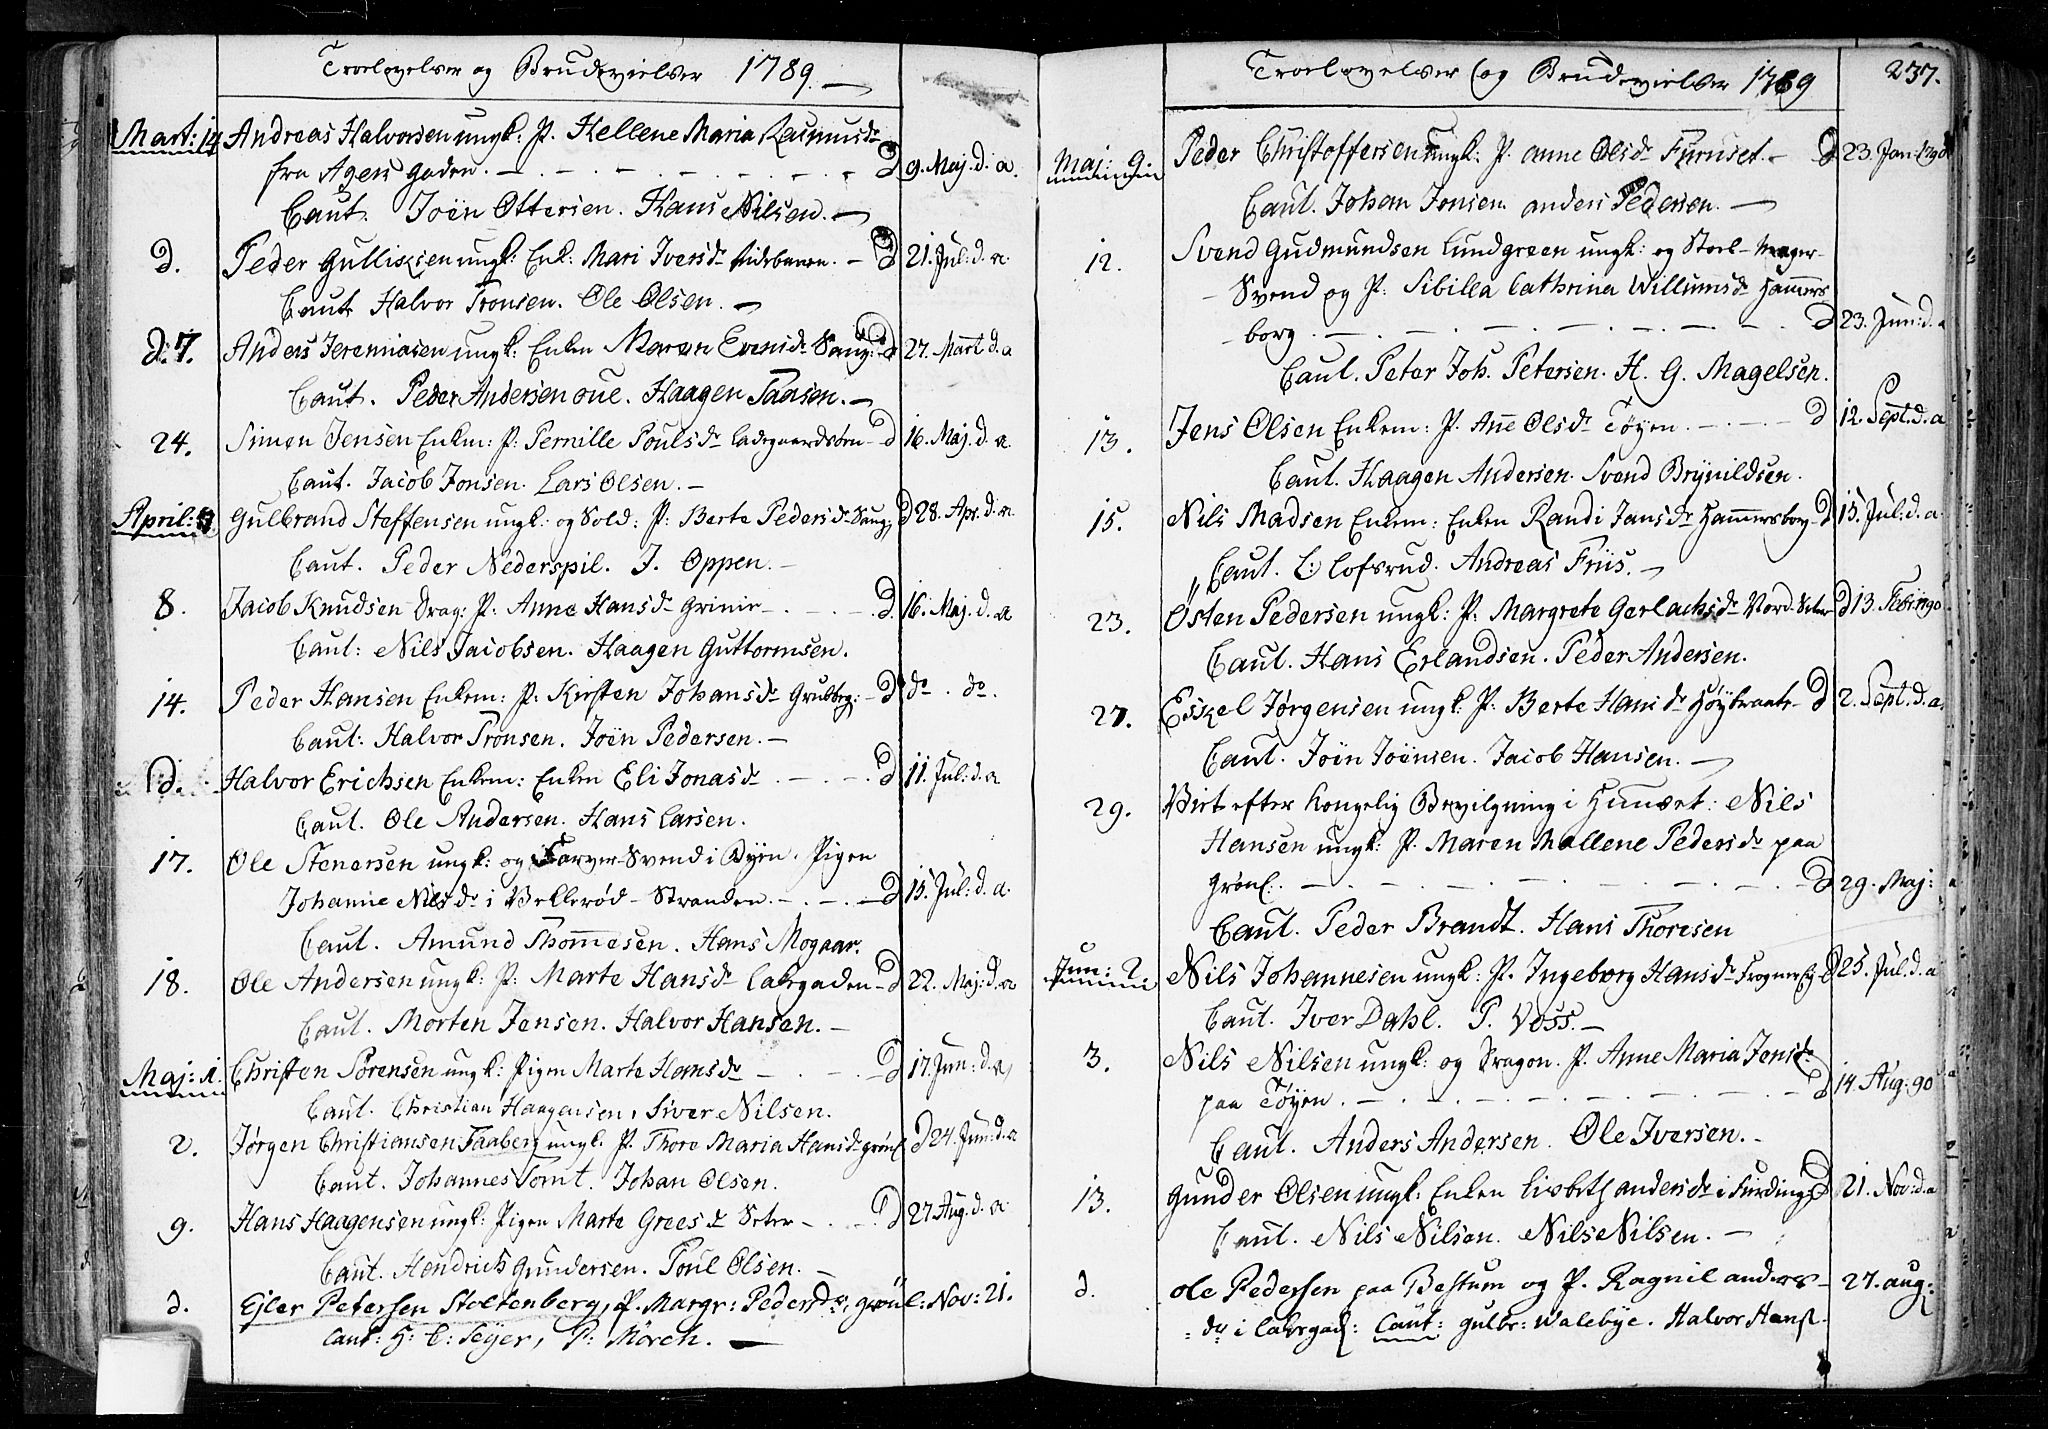 Troelovelser og Brudevielser 1789.
Mart: 14 Andreas Halvorsen ungk: P. Hellene Maria Rasmusdr
fra Agers gaden. D 9. Maj. d. a.
Caut. Joen Ottersen. Hans Nilsen.
d. Peder Gullichsen ungk: Enk: Mari Iversdr D 21. Jul: d. a.
Caut. Halvor Tronsen. Ole Olsen.
d. 7. Anders Jeremiasen ungk: Enken Maren Evensdr Saug: D 27. Mart d. a
Caut. Peder Andersen Oue. Haagen Taasen.
24. Simen Jensen Enkm: P: Pernille Poulsdr Ladegaardsøen D 16. Maj. d. a.
Caut. Jacob Jonsen. Lars Olsen.
April: Gulbrand Steffensen ungk: og Sold: P: Berte Pedersdr Saug: D 28. Apr. d. a.
Caut. Peder Nederspil. J. Oppen.
8. Jacob Knudsen Drag: P: Anne Hansdr Grinie D. 16. Maj. d. a
Caut: Nils Jacobsen. Haagen Guttormsen.
14. Peder Hansen Enkem: P: Kirsten Johansdr Grubbeg: D do. do.
Caut: Halvor Tronsen. Joen Pedersen.
D. Halvor Erichsen Enkem: Enken Eli Jonasdr D 11. Jul: d. a
Caut. Ole Andersen. Hans Larsen.
17. Ole Stenersen ungk: og Farver-Svend i Byen. Pigen
Johanne Nilsdr i Vellerød-Stranden. D 15. Jul: d. a.
Caut. Amund Thommesen. Hans Mogaar.
18. Ole Andersen ungk: P: Marte Hansdr Lakegaden D 22. Maj: d. a
Caut. Morten Jensen. Halvor Hansen.
Maj: 1. Christen Sørensen ungk: Pigen Marte Hansdr D 17. Jun: d. a,
Caut. Christian Haagensen, Siver Nilsen.
2. Jørgen Christiansen Faaberg ungk. P. Thore Maria Hansdr grønl D 24. Jun: d. a
Caut. Johannes Tomt. Johan Olsen.
9. Hans Haagensen ungk: Pigen Marte Greesdr Seter D 27 Aug. d. a.
Caut. Hendrich Gundersen. Poul Olsen.
d. Ejler Petersen Stoltenberg, P. Margr: Pedersdr, grøn l: Nov: 21.
Caut: H: C: Seyer, P: Mørch.
Troelovelser og Brudevielser 1789 237.
Maj: 9. Peder Christoffersen ungk: P. Anne Olsdr Furuset. D 23. Jan. 1790
Caut. Johan Jonsen. Anders Pedersen.
12. Svend Gudmundsen Lundgreen ungk: og Stoel-mager-
Svend og P. Sibilla Cathrina Williumsdr Hammers
borg. D 23. Jun: d. a
Caut. Peter Joh. Petersen. H. G. Magelsen.
13. Jens Olsen Enkem: P. Anne Olsdr Tøyen. D 12. Sept. d. a
Caut. Haagen Andersen. Svend Brynildsen.
15. Nils Madsen Enkem: Enken Randi Jansdr Hammersborg D 15. Jul: d. a.
Caut. L: Lofsrud. Andreas Friis.
23. Østen Pedersen ungk: P: Margrete Gerlachsdr Nord-Seter D 13. Febr: 90
Caut. Hans Erlandsen. Peder Andersen.
27. Eskel Jørgensen ungk: P: Berte Hansdr Høybraate D 2. Sept. d. a.
Caut. Joen Joensen. Jacob Hansen.
29. Viet efter Kongelig Bevilgning i Huuset: Nils
Hansen ungk: P. Maren Mallene Pedersdr paa
Grønl: D 29. Maj:
Caut. Peder Brandt. Hans Thoresen
Jun: 2. Nils Johannesen ungk: P. Ingeborg Hansdr Frogner Ej D 25. Jul. d. a
Caut. Iver Dahl. P. Voss.
3. Nils Nilsen ungk: og Dragon. P. Anne Maria Jensdr
paa Tøyen. D 14 Aug: 90
Caut. Anders Andersen. Ole Iversen.
13. Gunder Olsen ungk: Enken Lisbeth Andersdr i Furding: D 21. Nov: d. a
Caut. Nils Nilsen. Nils Nilsen.
d. Ole Pedersen paa Bestum og P. Ragnil anders- 27. aug:
dr i Lakegad: Caut: Gulbr: Walebye. Halvor Hans.